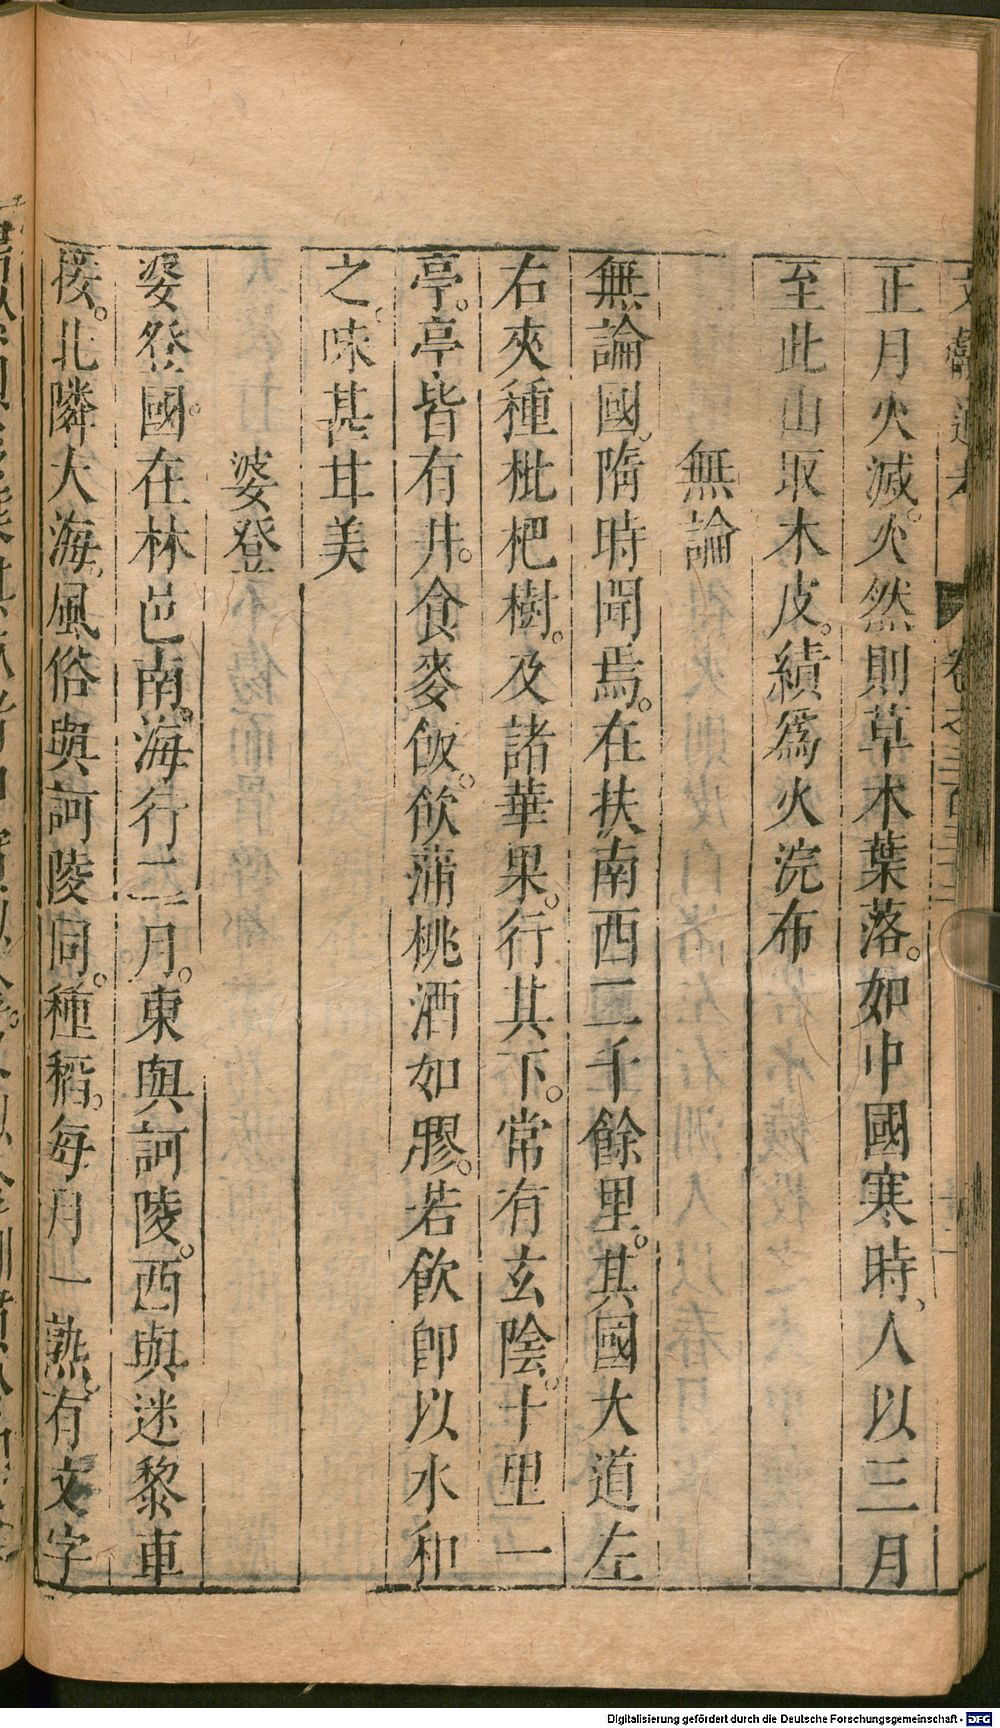 正月火滅。火然則草木葉落。如中國寒時、人以三月
至此山取木皮。績爲火浣布
無論
無論國、隋時聞焉。在扶南西二千餘里。其國大道左
右夾種枇杷樹。及諸華果。行其下。常有玄陰。十里一
亭。亭皆有井。食麥飯。飲蒲桃酒如膠。若飲卽以水和
之、味甚甘美
婆登
婆登國。在林邑南。海行二月。東與訶陵。西與迷黎車
接。北隣大海、風俗與訶陵同。種稻。每月一熟、有文字
Digitalisierung gefördert durch die Deutsche Forschungsgemeinschaft - DFG